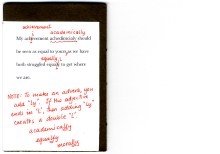 achievement
academically
My achievment acheedimicaly should
be seen as equal to yours as we have
equally
both struggled equaly to get where
we are.
NOTE: To make an adverb, you
add "ly". If the adjective
ends in "L", then adding "Ly"
creates a double "L"
academically
equally
morally